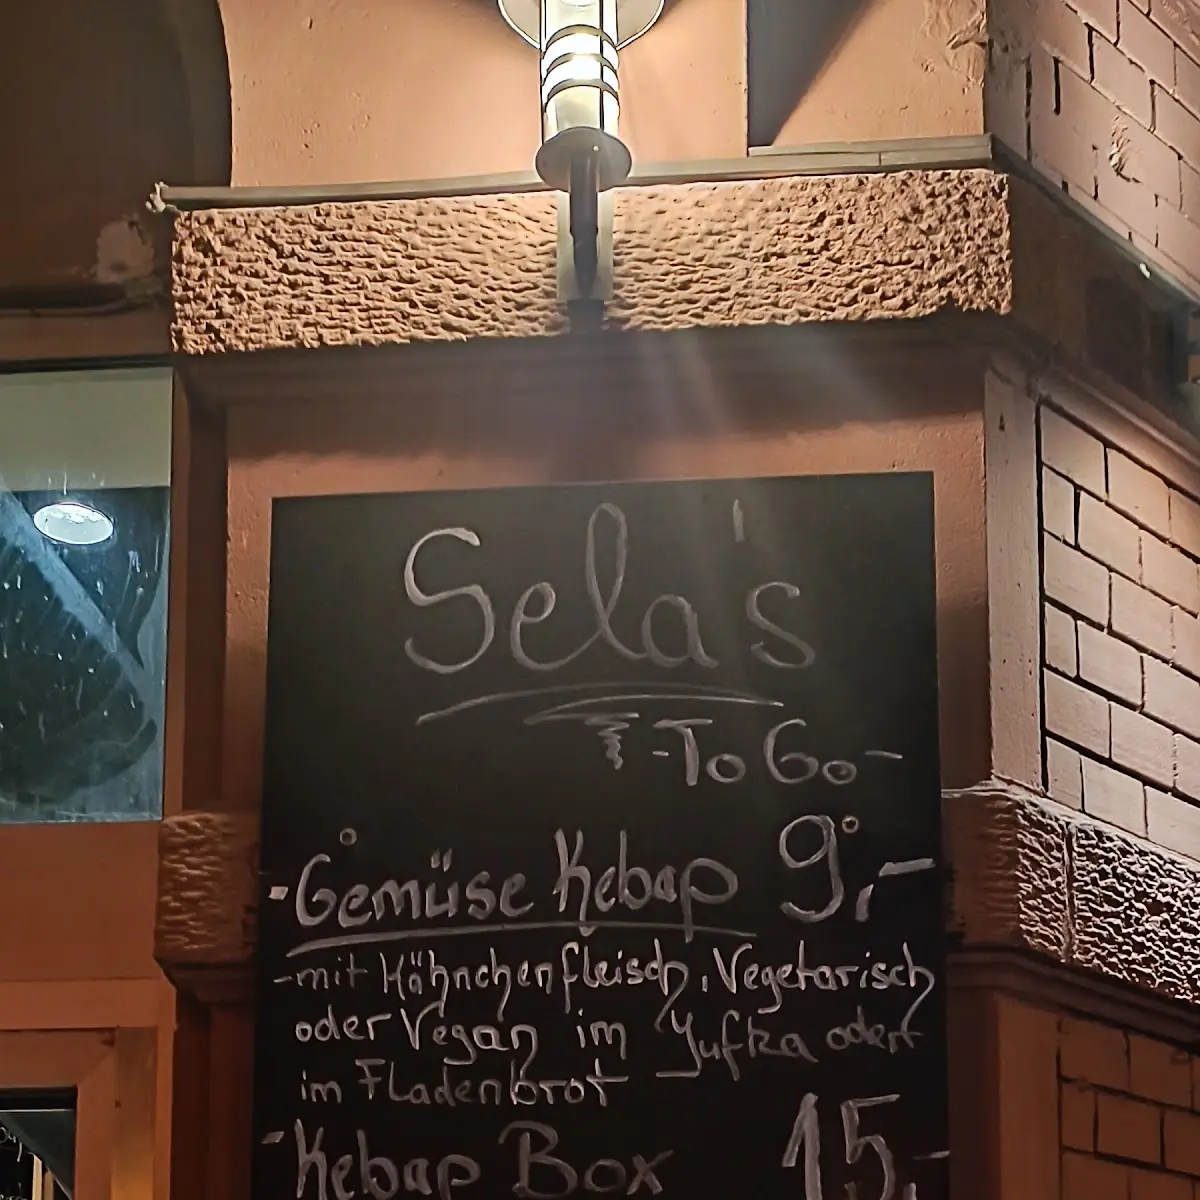 Sela's
-To Go-
-Gemüse Kebap 9,-
-mit Hähnchenfleisch, Vegetarisch
oder Vegan im Yufka oder
im Fladenbrot
-Kebap Box 15,-